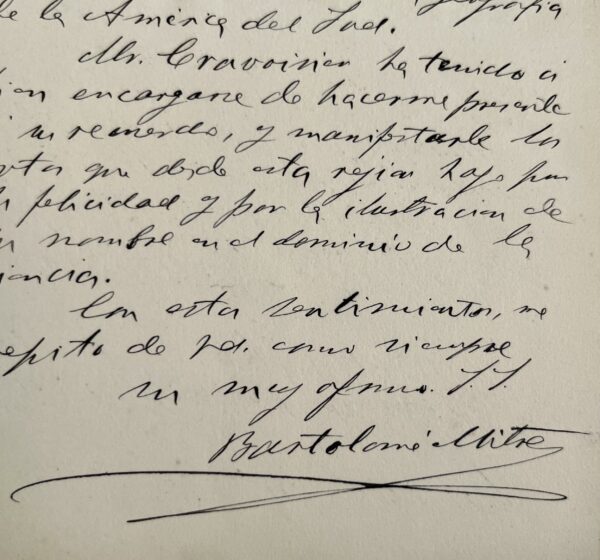 de la América del Sud.
geografia
Mr. Cravoisier ha tenido a
bien encargarse de hacerme presente
a su recuerdo, y manifestarle los
votos que desde esta rejion hago por
su felicidad y por la ilustracion de
su nombre en el dominio de la
ciencia.
Con estos sentimientos, me
repito de Vd. como siempre
su muy afmo. S. S.
Bartolomé Mitre